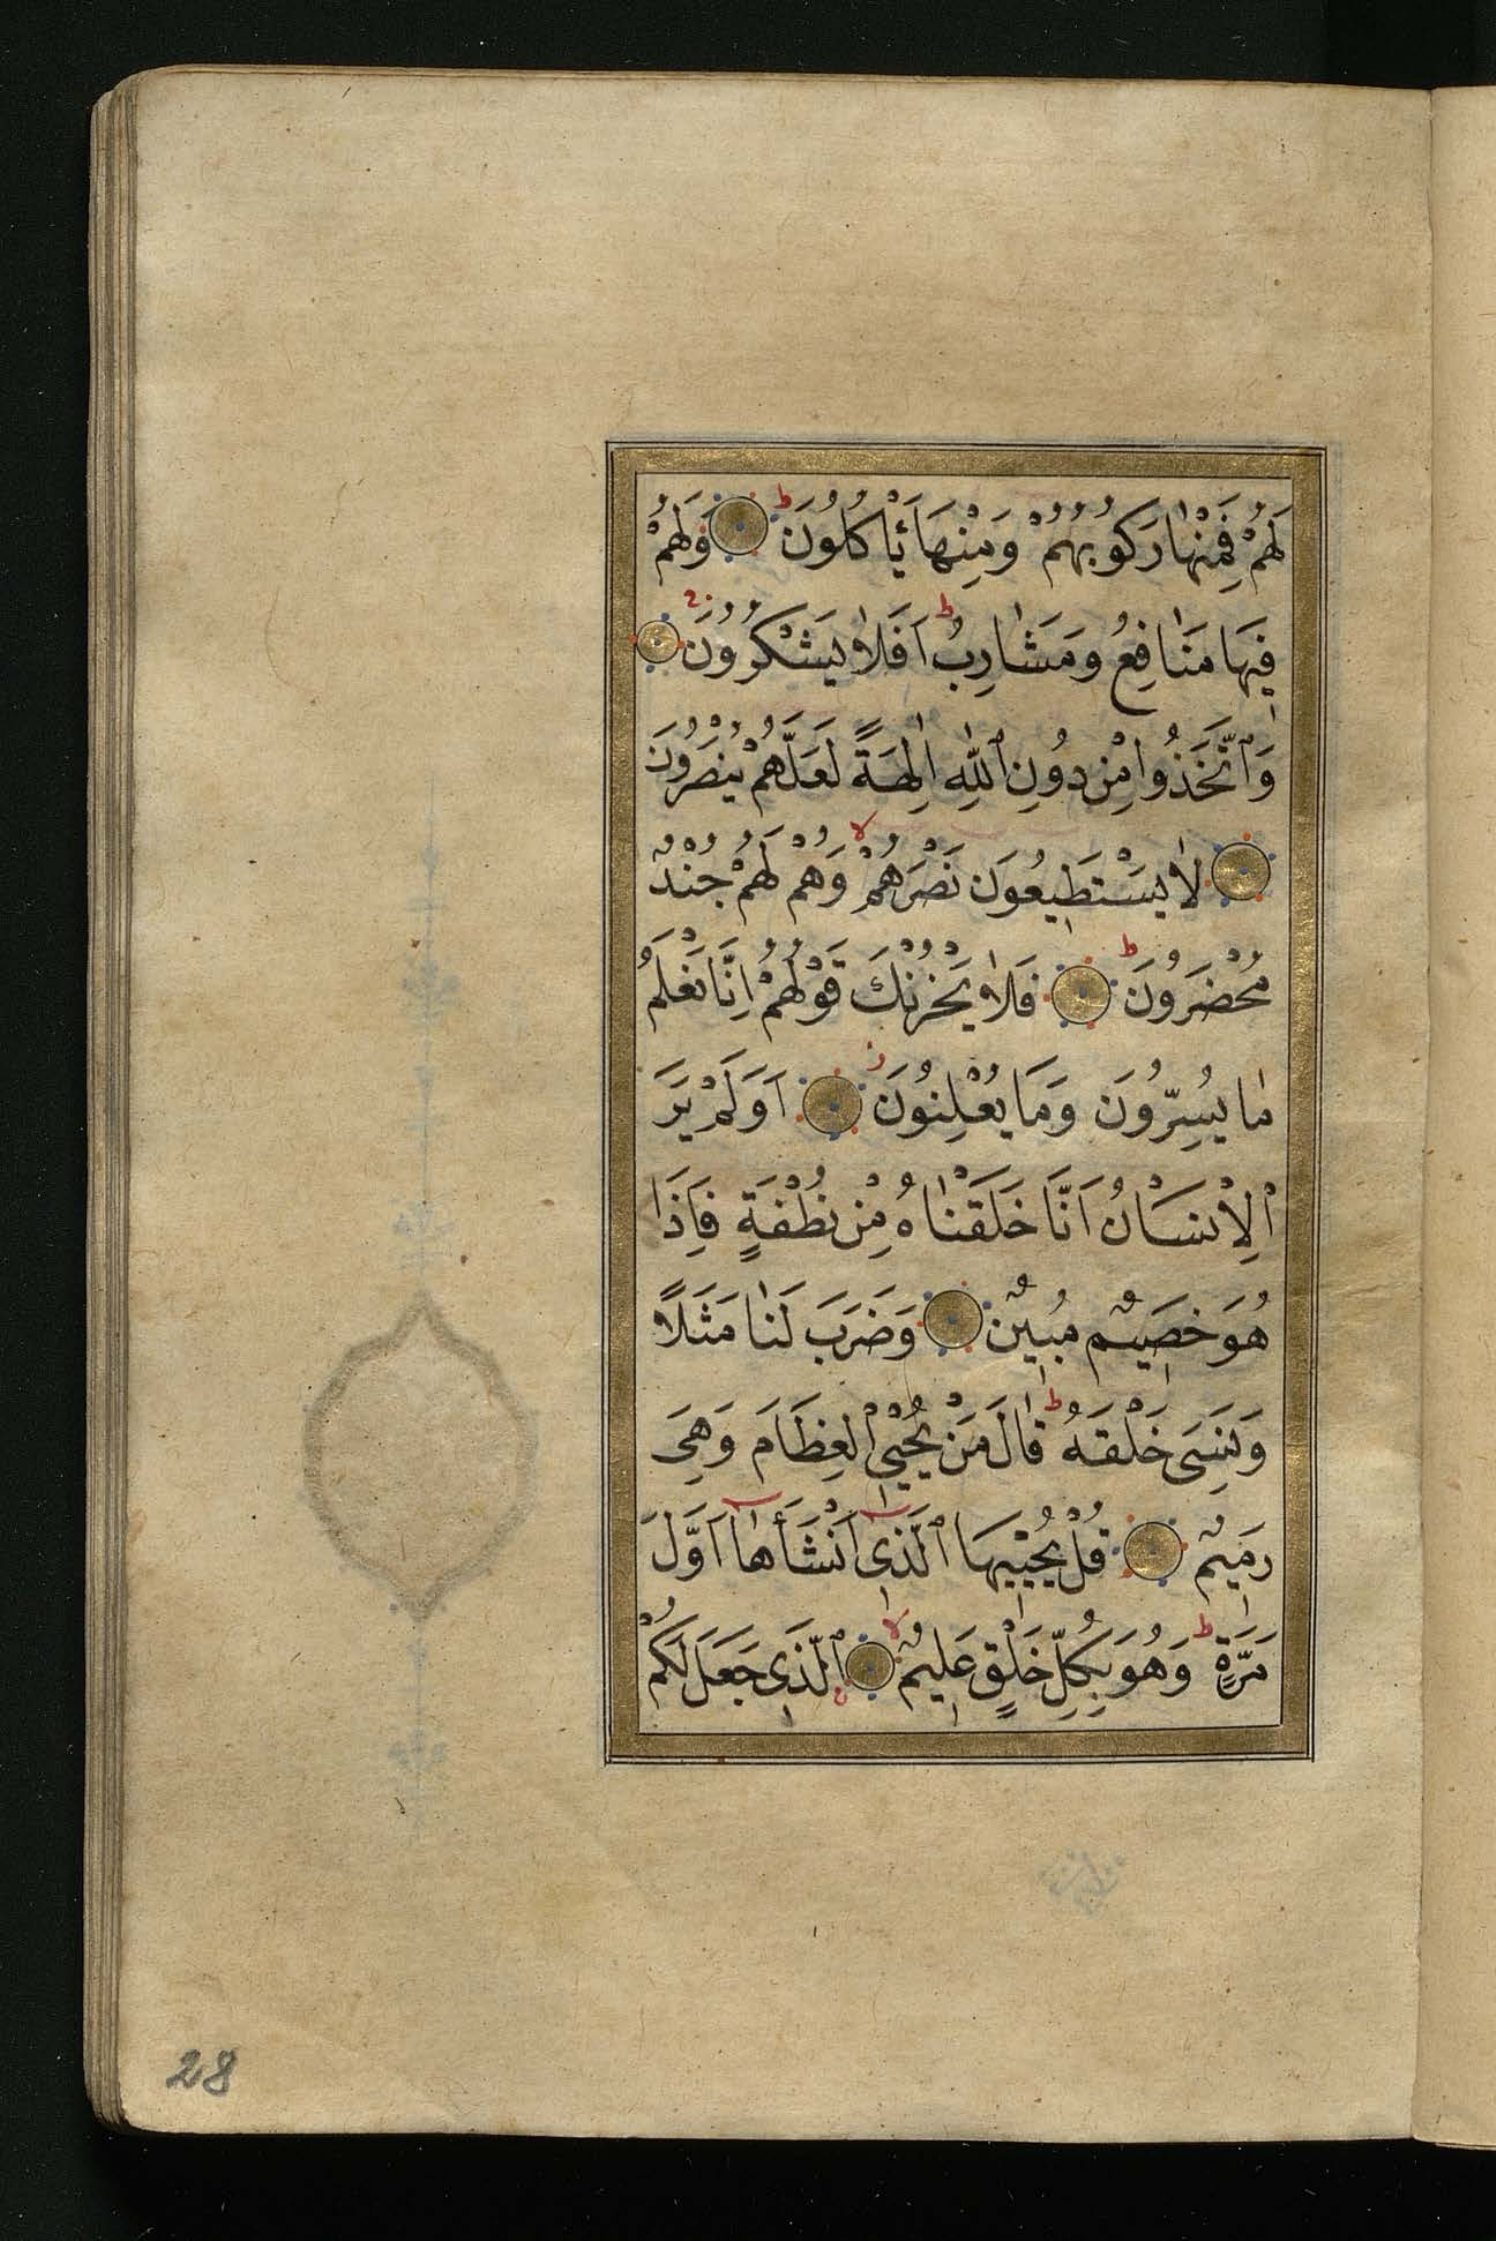 لَهُمْ فَمِنْهٰا رَكُوبُهُمْ وَمِنْهَا يَأْكُلُونَ ۝ وَلَهُمْ
فِيهَا مَنٰافِعُ وَمَشٰارِبُ اَفَلاٰ يَشْكُرُونَ ۝
وَاتَّخَذُوا مِنْ دُونِ اللّٰهِ اٰلِهَةً لَعَلَّهُمْ يُنْصَرُونَ
۝ لاٰ يَسْتَطِيعُونَ نَصْرَهُمْ وَهُمْ لَهُمْ جُنْدٌ
مُحْضَرُونَ ۝ فَلاٰ يَحْزُنْكَ قَوْلُهُمْ اِنَّا نَعْلَمُ
مٰا يُسِرُّونَ وَمَا يُعْلِنُونَ ۝ اَوَلَمْ يَرَ
الْاِنْسَانُ اَنَّا خَلَقْنٰاهُ مِنْ نُطْفَةٍ فَاِذَا
هُوَ خَصِيمٌ مُبِينٌ ۝ وَضَرَبَ لَنٰا مَثَلًا
وَنَسِىَ خَلْقَهُ قٰالَ مَنْ يُحْيِي الْعِظَامَ وَهِىَ
رَمِيمٌ ۝ قُلْ يُحْيِيهَا الَّذِى اَنْشَأَهٰا اَوَّلَ
مَرَّةٍ وَهُوَ بِكُلِّ خَلْقٍ عَلِيمٌ ۝ الَّذِى جَعَلَ لَكُمْ
28